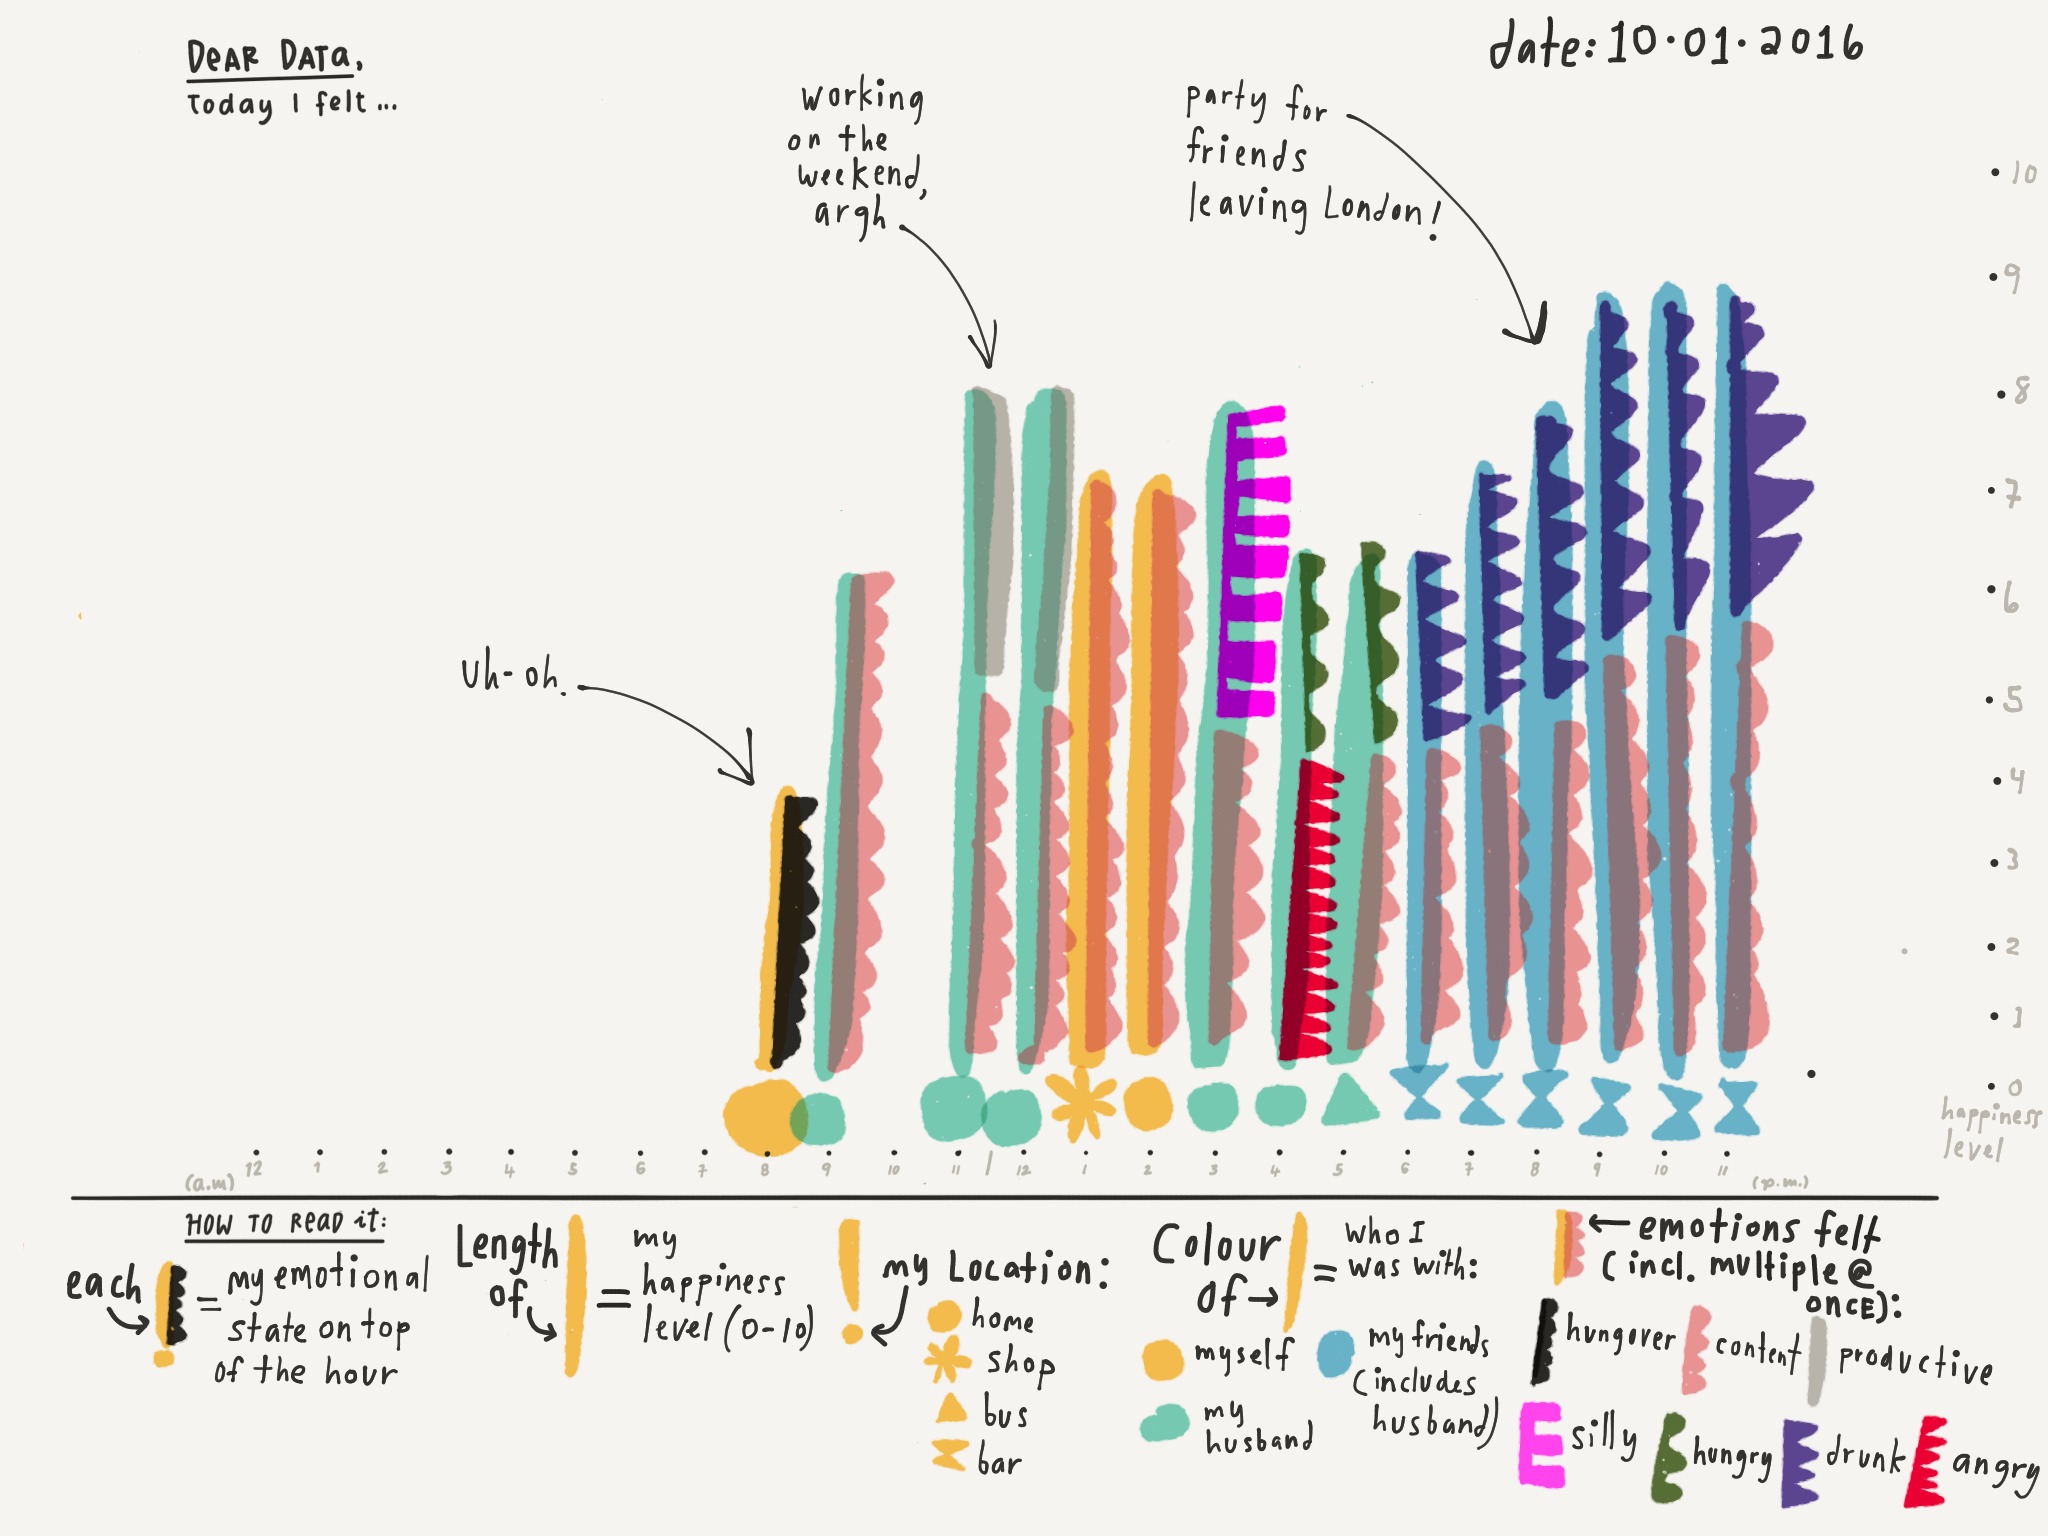 DEAR DATA,
Today I felt...
date: 10.01.2016
working
on the
weekend,
argh
party for
friends
leaving London!
Uh-oh.
10
9
8
7
6
5
4
3
2
1
0
happiness
level
(a.m) 12 1 2 3 4 5 6 7 8 9 10 11 12 1 2 3 4 5 6 7 8 9 10 11 (p.m.)
HOW TO READ it:
each = my emotional
state on top
of the hour
Length
of = my
happiness
level (0-10)
my Location:
home
shop
bus
bar
Colour
of → = who I
was with:
myself
my friends
(includes
husband)
my
husband
← emotions felt
(incl. multiple @
ONCE):
hungover
content
productive
silly
hungry
drunk
angry